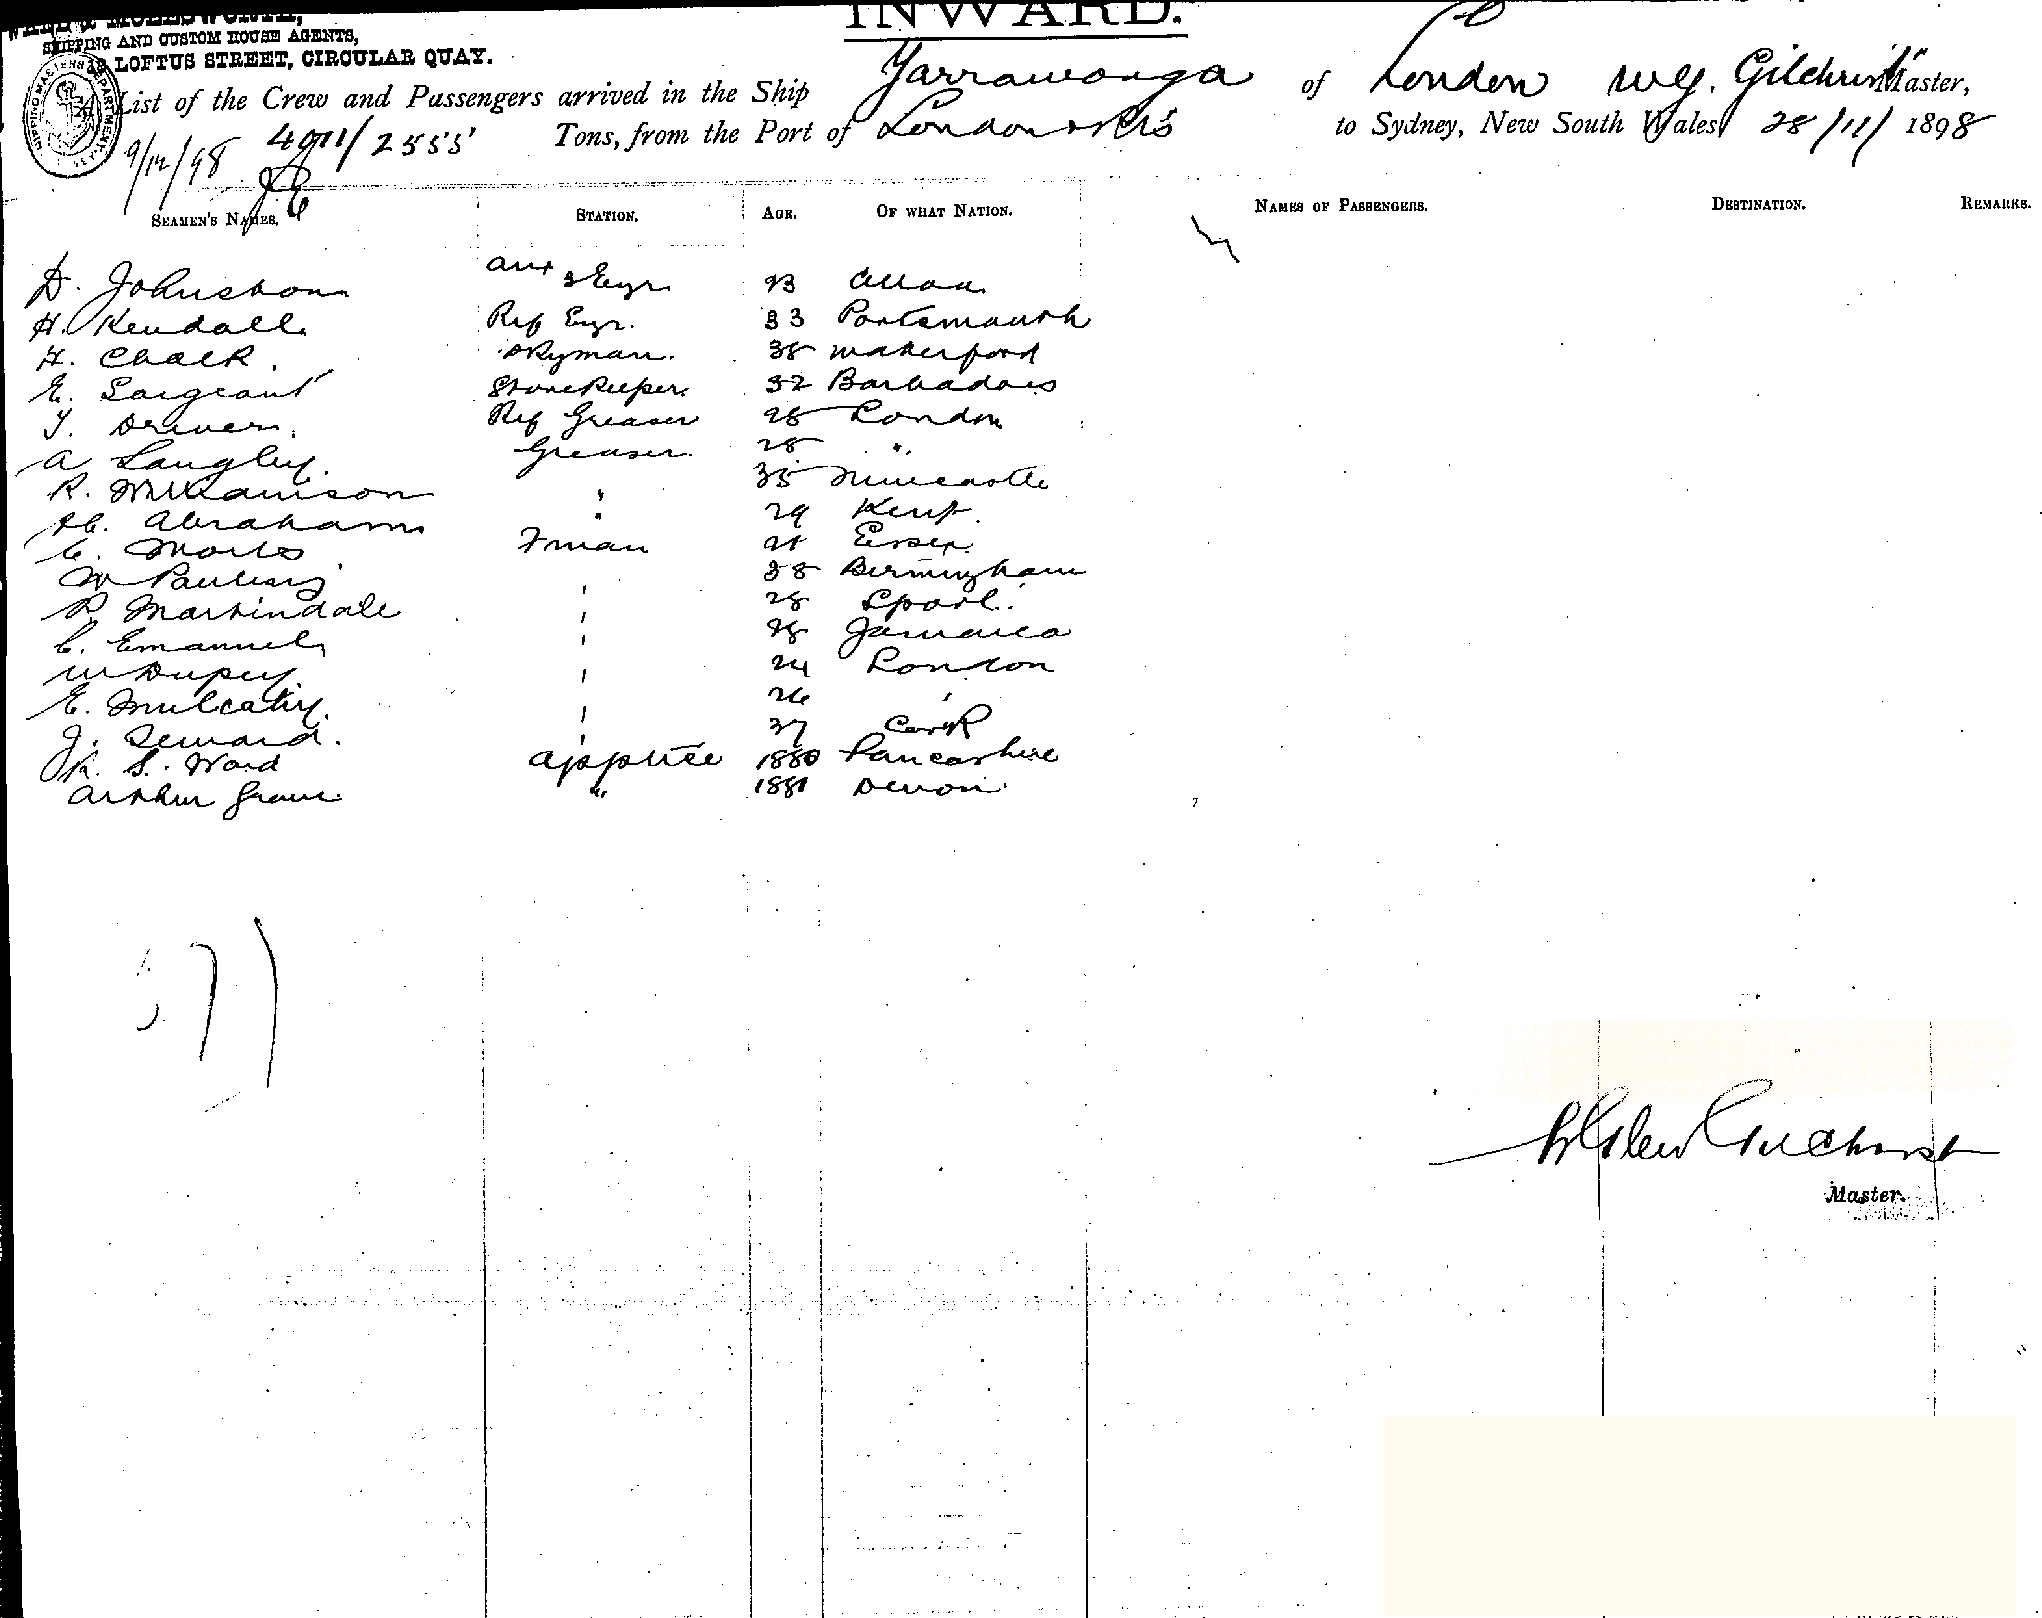 MOLESWORTH,
INWARD.
SHIPPING AND CUSTOM HOUSE AGENTS,
LOFTUS STREET, CIRCULAR QUAY.
List of the Crew and Passengers arrived in the Ship Yarrawonga of London W.G. Gilchrist Master,
4011/2555 Tons, from the Port of London & Pts to Sydney, New South Wales 28/11/1898
9/12/98
SEAMEN'S NAMES. STATION. AGE. OF WHAT NATION. NAMES OF PASSENGERS. DESTINATION. REMARKS.
D. Johnston 3 Engr 23 Alloa
H. Kendall Ref Engr. 33 Portsmouth
H. Chalk. Dkyman. 38 Waterford
E. Sargeant Storekeeper 32 Barbadoes
T. Driver. Ref Greaser 28 London
A Langley. Greaser 28 "
R. Williamson " 35 Newcastle
H. Abrahams " 29 Kent.
C. Fman 21 Essex
W 38 Birmingham
R Martindale 28 Lpool.
C. Emanuel 28 Jamaica
W Dupey 24 London
E. Mulcahy. 26
J. Seward. 37 Cork
R. S. Ward apptice 1880 Lancashire
Arthur " 1881 Devon
Gilchrist
Master.